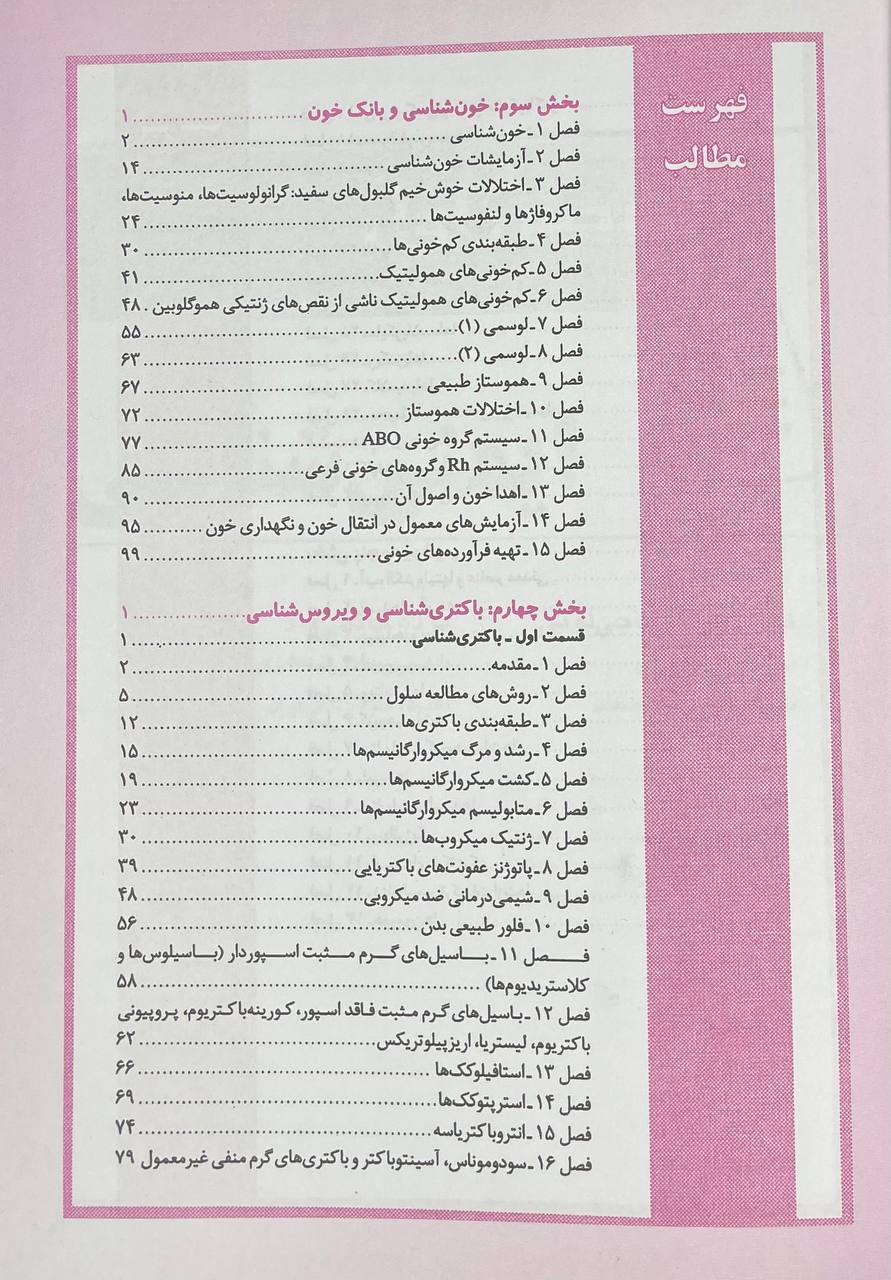 فهرست
مطالب
بخش سوم: خون‌شناسی و بانک خون ........................ ۱
فصل ۱ـ خون‌شناسی ........................ ۲
فصل ۲ـ آزمایشات خون‌شناسی ........................ ۱۴
فصل ۳ـ اختلالات خوش‌خیم گلبول‌های سفید: گرانولوسیت‌ها، منوسیت‌ها،
ماکروفاژها و لنفوسیت‌ها ........................ ۲۴
فصل ۴ـ طبقه‌بندی کم‌خونی‌ها ........................ ۳۰
فصل ۵ـ کم‌خونی‌های همولیتیک ........................ ۴۱
فصل ۶ـ کم‌خونی‌های همولیتیک ناشی از نقص‌های ژنتیکی هموگلوبین . ۴۸
فصل ۷ـ لوسمی (۱) ........................ ۵۵
فصل ۸ـ لوسمی (۲) ........................ ۶۳
فصل ۹ـ هموستاز طبیعی ........................ ۶۷
فصل ۱۰ـ اختلالات هموستاز ........................ ۷۲
فصل ۱۱ـ سیستم گروه خونی ABO ........................ ۷۷
فصل ۱۲ـ سیستم Rh و گروه‌های خونی فرعی ........................ ۸۵
فصل ۱۳ـ اهدا خون و اصول آن ........................ ۹۰
فصل ۱۴ـ آزمایش‌های معمول در انتقال خون و نگهداری خون .......... ۹۵
فصل ۱۵ـ تهیه فرآورده‌های خونی ........................ ۹۹
بخش چهارم: باکتری‌شناسی و ویروس‌شناسی ........................ ۱
قسمت اول ـ باکتری‌شناسی ........................ ۱
فصل ۱ـ مقدمه ........................ ۲
فصل ۲ـ روش‌های مطالعه سلول ........................ ۵
فصل ۳ـ طبقه‌بندی باکتری‌ها ........................ ۱۲
فصل ۴ـ رشد و مرگ میکروارگانیسم‌ها ........................ ۱۵
فصل ۵ـ کشت میکروارگانیسم‌ها ........................ ۱۹
فصل ۶ـ متابولیسم میکروارگانیسم‌ها ........................ ۲۳
فصل ۷ـ ژنتیک میکروب‌ها ........................ ۳۰
فصل ۸ـ پاتوژنز عفونت‌های باکتریایی ........................ ۳۹
فصل ۹ـ شیمی‌درمانی ضد میکروبی ........................ ۴۸
فصل ۱۰ـ فلور طبیعی بدن ........................ ۵۶
فصل ۱۱ـ باسیل‌های گرم مثبت اسپوردار (باسیلوس‌ها و
کلاستریدیوم‌ها) ........................ ۵۸
فصل ۱۲ـ باسیل‌های گرم مثبت فاقد اسپور، کورینه‌باکتریوم، پروپیونی
باکتریوم، لیستریا، اریزیپلوتریکس ........................ ۶۲
فصل ۱۳ـ استافیلوکک‌ها ........................ ۶۶
فصل ۱۴ـ استرپتوکک‌ها ........................ ۶۹
فصل ۱۵ـ انتروباکتریاسه ........................ ۷۴
فصل ۱۶ـ سودوموناس، آسینتوباکتر و باکتری‌های گرم منفی غیرمعمول ۷۹